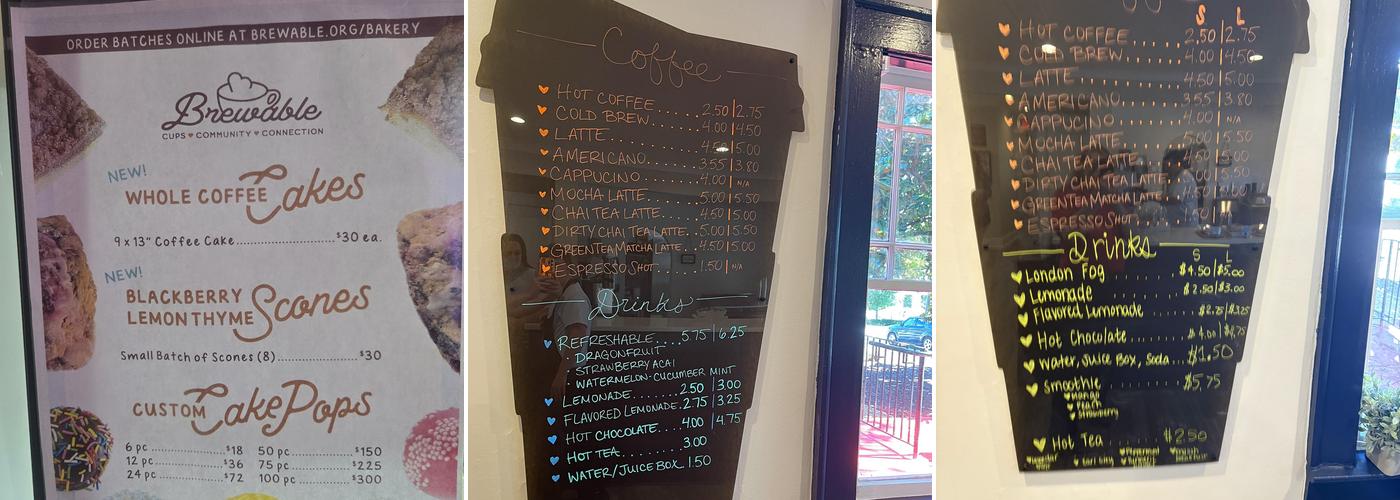 ORDER BATCHES ONLINE AT BREWABLE.ORG/BAKERY
Brewable
CUPS ♥ COMMUNITY ♥ CONNECTION
NEW!
WHOLE COFFEE Cakes
9 x 13" Coffee Cake.......................$30 ea.
NEW!
BLACKBERRY
LEMON THYME Scones
Small Batch of Scones (8)....................$30
CUSTOM Cake Pops
6 pc ....................$18 50 pc ....................$150
12 pc ....................$36 75 pc ....................$225
24 pc ....................$72 100 pc ....................$300
Coffee
HOT COFFEE.......2.50|2.75
COLD BREW.......4.00|4.50
LATTE.......4.50|5.00
AMERICANO.......3.55|3.80
CAPPUCINO.......4.00|N/A
MOCHA LATTE.......5.00|5.50
CHAI TEA LATTE.....4.50|5.00
DIRTY CHAI TEA LATTE..5.00|5.50
GREEN TEA MATCHA LATTE..4.50|5.00
ESPRESSO SHOT.....1.50|N/A
Drinks
REFRESHABLE....5.75|6.25
· DRAGONFRUIT
· STRAWBERRY ACAI
· WATERMELON-CUCUMBER MINT
LEMONADE.......2.50|3.00
FLAVORED LEMONADE.2.75|3.25
HOT CHOCOLATE....4.00|4.75
HOT TEA.......3.00
WATER/JUICE BOX 1.50
S L
HOT COFFEE.......2.50|2.75
COLD BREW.......4.00|4.50
LATTE.......4.50|5.00
AMERICANO.......3.55|3.80
CAPPUCINO.......4.00|N/A
MOCHA LATTE.......5.00|5.50
CHAI TEA LATTE.....4.50|5.00
DIRTY CHAI TEA LATTE..5.00|5.50
GREEN TEA MATCHA LATTE..4.50|5.00
ESPRESSO SHOT
Drinks S L
London Fog $4.50|$5.00
Lemonade ...... $2.50|$3.00
Flavored Lemonade ..... $2.75|$3.25
Hot Chocolate ........ $4.00|$4.75
Water, Juice Box, Soda...$1.50
Smoothie ........ $5.75
♥ Mango
♥ Peach
♥ Strawberry
Hot Tea ........ $2.50
Earl Grey
Peppermint